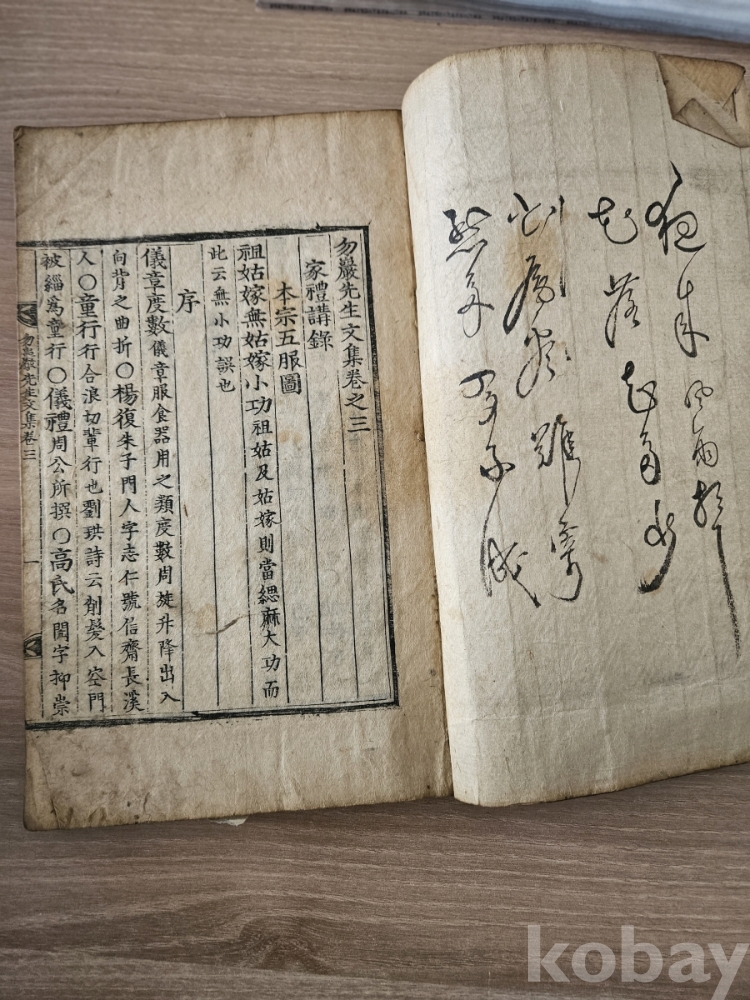 夜來風雨聲
花落知多少
勿巖先生文集卷之三
家禮講錄
本宗五服圖
祖姑嫁無姑嫁小功祖姑及姑嫁則當緦麻大功而
此云無小功誤也
序
儀章度數儀章服食器用之類度數周旋升降出入
向背之曲折〇楊復朱子門人字志仁號信齋長溪
人〇童行行合浪切輩行也劉珙詩云削髮入空門
被緇爲童行〇儀禮周公所撰〇高氏名閌字抑崇
勿巖先生文集卷三
一
kobay